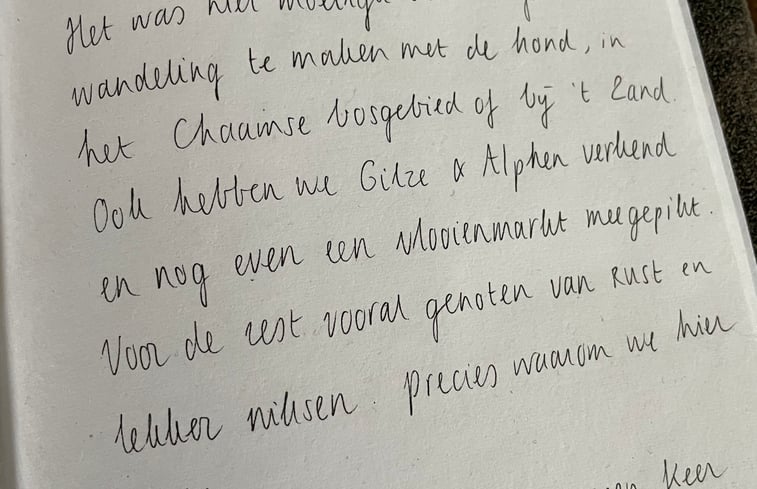 Het was niet
wandeling te maken met de hond, in
het Chaamse bosgebied of bij 't Zand.
Ook hebben we Gilze & Alphen verkend
en nog even een vlooienmarkt meegepikt.
Voor de rest vooral genoten van Rust en
lekker niksen. Precies waarom we hier
keer